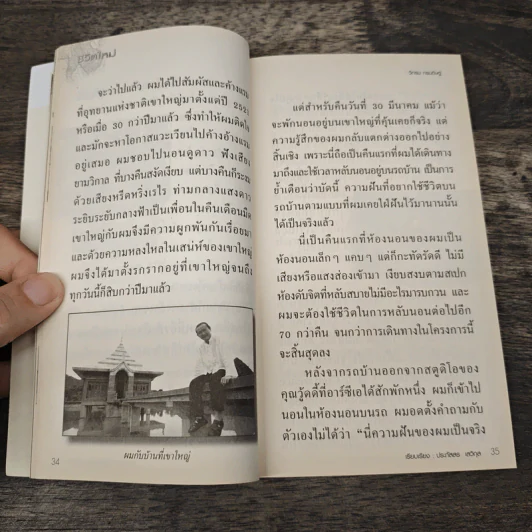 ชีวิตใหม่
จะว่าไปแล้ว ผมได้ไปสัมผัสและค้างแรม
ที่อุทยานแห่งชาติเขาใหญ่มาตั้งแต่ปี
หรือเมื่อ 30 กว่าปีมาแล้ว ซึ่งทำให้ผมติด
และมักจะหาโอกาสแวะเวียนไปค้างอ้างแรม
อยู่เสมอ ผมชอบไปนอนดูดาว ฟังเสียง
ยามวิกาล ที่บางคืนสงัดเงียบ แต่บางคืนก็ระงม
ด้วยเสียงหรีดหริ่งเรไร ท่ามกลางแสงดาว
ระยิบระยับกลางฟ้าเป็นเพื่อนในคืนเดือนมืด
เขาใหญ่กับผมจึงมีความผูกพันกันเรื่อยมา
และด้วยความหลงใหลในเสน่ห์ของเขาใหญ่
ผมจึงได้มาตั้งรกรากอยู่ที่เขาใหญ่จนถึง
ทุกวันนี้ก็สิบกว่าปีมาแล้ว
ผมกับบ้านที่เขาใหญ่
34
วิกรม กรมดิษฐ์
แต่สำหรับคืนวันที่ 30 มีนาคม แม้ว่า
จะพักนอนอยู่บนเขาใหญ่ที่คุ้นเคยก็จริง แต่
ความรู้สึกของผมกลับแตกต่างออกไปอย่าง
สิ้นเชิง เพราะนี่ถือเป็นคืนแรกที่ผมได้เดินทาง
มาถึงและใช้เวลาหลับนอนอยู่บนรถบ้าน เป็นการ
ย้ำเตือนว่าบัดนี้ ความฝันที่อยากใช้ชีวิตบน
รถบ้านตามแบบที่ผมเคยใฝ่ฝันไว้มานานนั้น
ได้เป็นจริงแล้ว
นี่เป็นคืนแรกที่ห้องนอนของผมเป็น
ห้องนอนเล็กๆ แคบๆ แต่ก็กะทัดรัดดี ไม่มี
เสียงหรือแสงส่องเข้ามา เงียบสงบตามสเปก
ห้องดับจิตที่หลับสบายไม่มีอะไรมารบกวน และ
ผมจะต้องใช้ชีวิตในการหลับนอนต่อไปอีก
70 กว่าคืน จนกว่าการเดินทางในโครงการนี้
จะสิ้นสุดลง
หลังจากรถบ้านออกจากสตูดิโอของ
คุณวู้ดดี้ที่อาร์ซีเอได้สักพักหนึ่ง ผมก็เข้าไป
นอนในห้องนอนบนรถ ผมอดตั้งคำถามกับ
ตัวเองไม่ได้ว่า “นี่ความฝันของผมเป็นจริง
เรียบเรียง : ปรมัสสร เสวิกุล 35